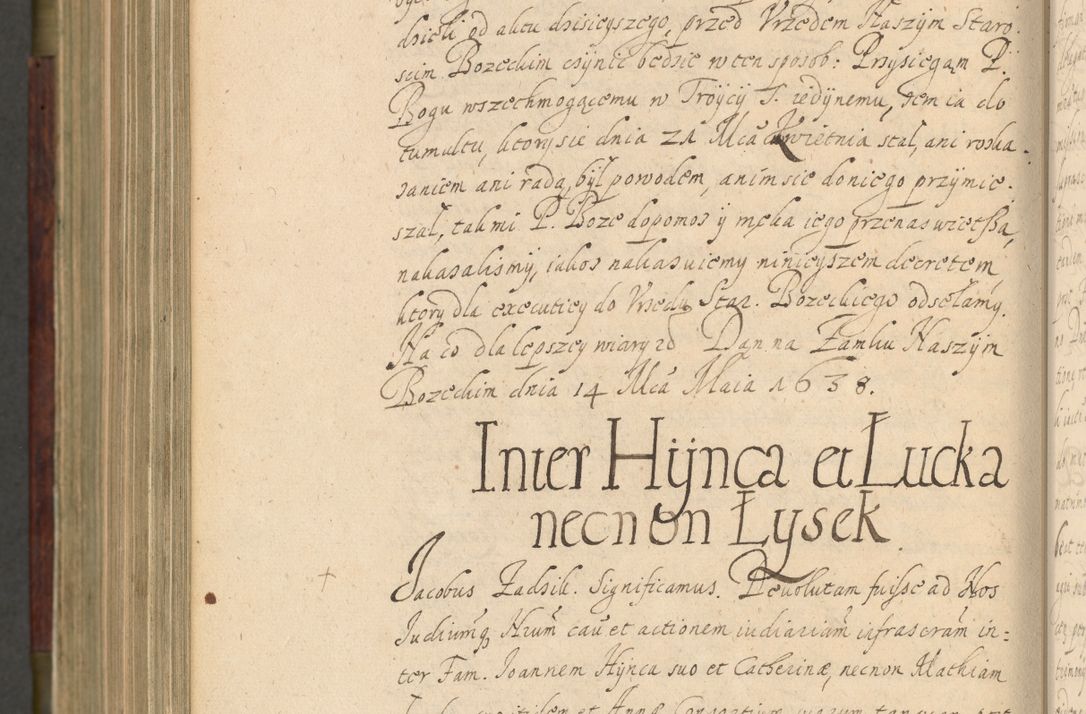 dzieli od aktu dzisieyszego, przed Vrzedem Naszym Staro:
scim Bozeckim czynic bedzie w ten sposob: Przysiegąm P.
Bogu wszechmogącemu w Troycy S. iedynemu, żem ia do
tumultu, ktory sie dnia 21 Mca Kwietnia stal, ani roska-
zaniem ani radą, był powodem, anim sie do niego przymie:
szał, tak mi P. Boze dopomos y męka iego przenaswietßa,
nakazalismy, iakos nakazuiemy ninieyszem decretem
ktory dla executiey do Vrzedu Star. Bozeckiego odsełamy.
Na co dla lepszey wiary zd Dan na Zamku Naszym
Bozeckim dnia 14 Mca Maia 1638.
Inter Hÿnca et Łucka
necnon Łysek
Jacobus Zadzik. Significamus. Deuolutam fuisse ad Nos
Iudiumq Nrum cau et actionem iudiariam infrascram in:
ter Fam. Ioannem Hÿnca suo et Catherinæ, necnon Mathiam
et Annæ Consortium